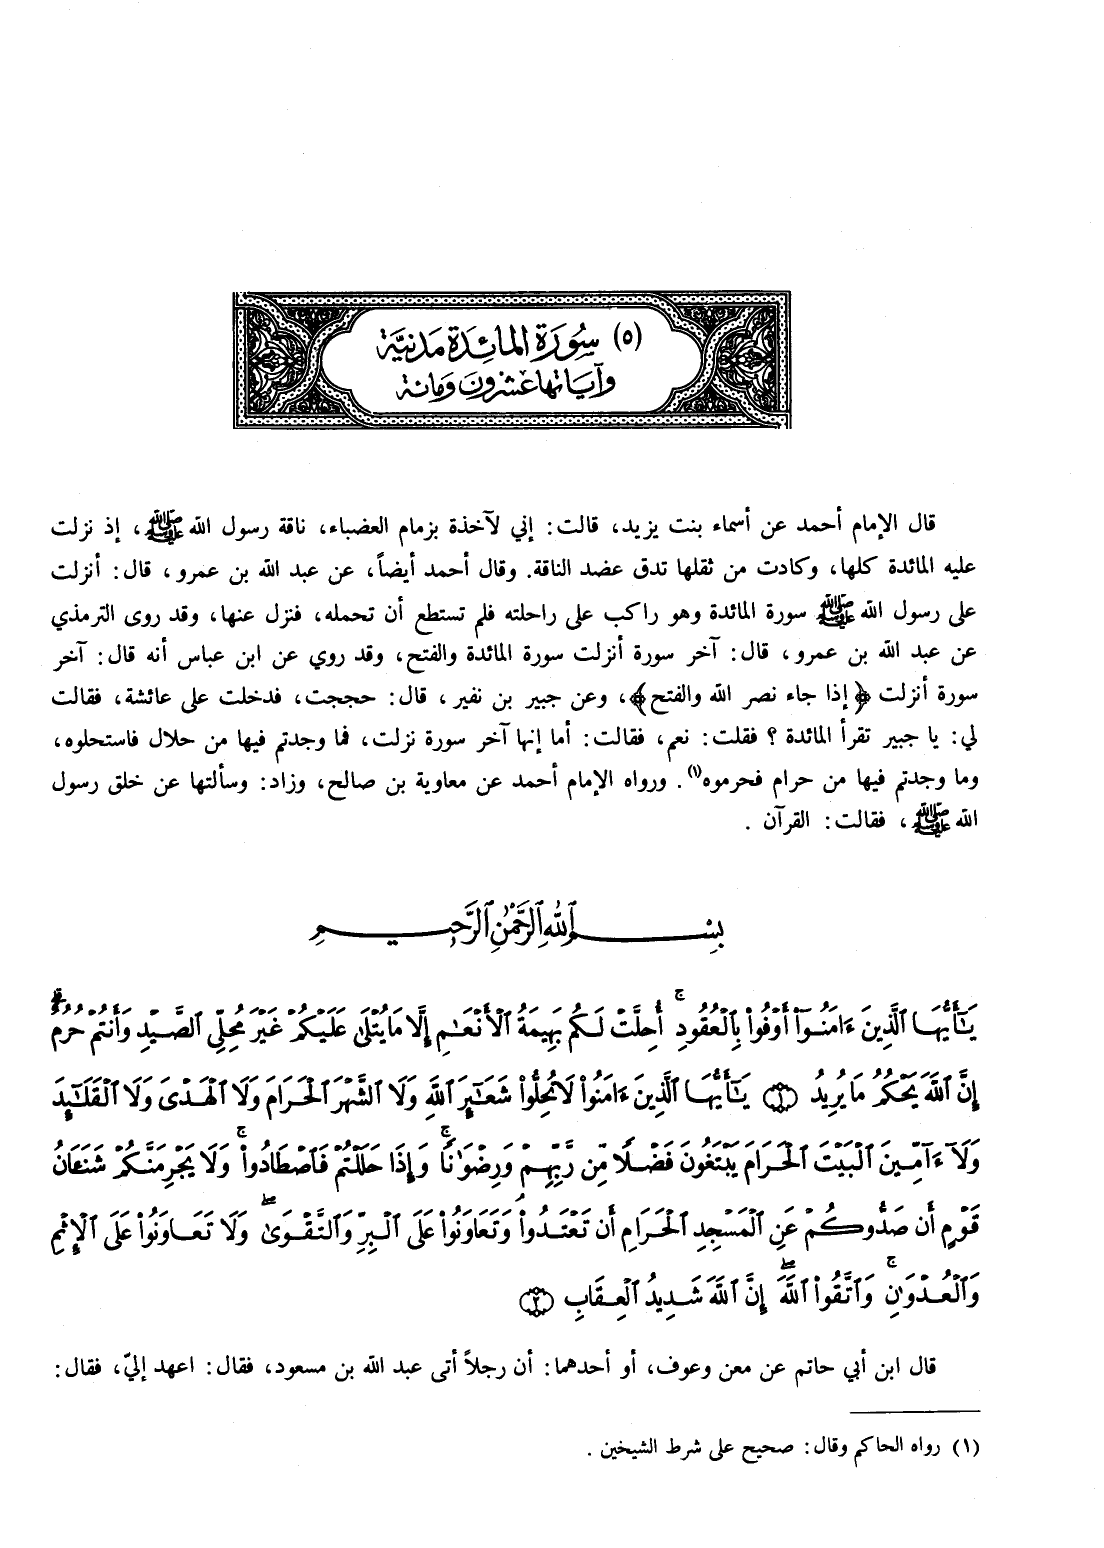 (٥) سُورَة المَائِدَة مَدنيَّة
وآيَاتهَا عشرُون وَمائة
قال الإمام أحمد عن أسماء بنت يزيد، قالت: إني لآخذة بزمام العضباء، ناقة رسول الله ﷺ، إذ نزلت
عليه المائدة كلها، وكادت من ثقلها تدق عضد الناقة. وقال أحمد أيضاً، عن عبد الله بن عمرو، قال: أنزلت
على رسول الله ﷺ سورة المائدة وهو راكب على راحلته فلم تستطع أن تحمله، فنزل عنها، وقد روى الترمذي
عن عبد الله بن عمرو، قال: آخر سورة أنزلت سورة المائدة والفتح، وقد روي عن ابن عباس أنه قال: آخر
سورة أنزلت ﴿إذا جاء نصر الله والفتح﴾، وعن جبير بن نفير، قال: حججت، فدخلت على عائشة، فقالت
لي: يا جبير تقرأ المائدة ؟ فقلت: نعم، فقالت: أما إنها آخر سورة نزلت، فما وجدتم فيها من حلال فاستحلوه،
وما وجدتم فيها من حرام فحرموه(١). ورواه الإمام أحمد عن معاوية بن صالح، وزاد: وسألتها عن خلق رسول
الله ﷺ، فقالت: القرآن .
بِسْمِ ٱللَّهِ ٱلرَّحْمَٰنِ ٱلرَّحِيمِ
يَـٰٓأَيُّهَا ٱلَّذِينَ ءَامَنُوٓا۟ أَوْفُوا۟ بِٱلْعُقُودِ ۚ أُحِلَّتْ لَكُم بَهِيمَةُ ٱلْأَنْعَـٰمِ إِلَّا مَا يُتْلَىٰ عَلَيْكُمْ غَيْرَ مُحِلِّى ٱلصَّيْدِ وَأَنتُمْ حُرُمٌ ۗ
إِنَّ ٱللَّهَ يَحْكُمُ مَا يُرِيدُ ﴿١﴾ يَـٰٓأَيُّهَا ٱلَّذِينَ ءَامَنُوا۟ لَا تُحِلُّوا۟ شَعَـٰٓئِرَ ٱللَّهِ وَلَا ٱلشَّهْرَ ٱلْحَرَامَ وَلَا ٱلْهَدْىَ وَلَا ٱلْقَلَـٰٓئِدَ
وَلَآ ءَآمِّينَ ٱلْبَيْتَ ٱلْحَرَامَ يَبْتَغُونَ فَضْلًا مِّن رَّبِّهِمْ وَرِضْوَٰنًا ۚ وَإِذَا حَلَلْتُمْ فَٱصْطَادُوا۟ ۚ وَلَا يَجْرِمَنَّكُمْ شَنَـَٔانُ
قَوْمٍ أَن صَدُّوكُمْ عَنِ ٱلْمَسْجِدِ ٱلْحَرَامِ أَن تَعْتَدُوا۟ ۘ وَتَعَاوَنُوا۟ عَلَى ٱلْبِرِّ وَٱلتَّقْوَىٰ ۖ وَلَا تَعَاوَنُوا۟ عَلَى ٱلْإِثْمِ
وَٱلْعُدْوَٰنِ ۚ وَٱتَّقُوا۟ ٱللَّهَ ۖ إِنَّ ٱللَّهَ شَدِيدُ ٱلْعِقَابِ ﴿٢﴾
قال ابن أبي حاتم عن معن وعوف، أو أحدهما: أن رجلاً أتى عبد الله بن مسعود، فقال: اعهد إليّ، فقال:
(١) رواه الحاكم وقال: صحيح على شرط الشيخين .